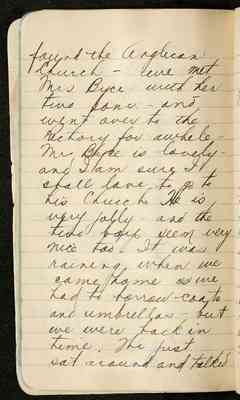 found the Anglican
Church - we met
Mrs Byce with her
two sons - and
went over to the
Rectory for awhile -
Mr Byce is lovely -
and I am sure I
shall love to go to
his Church. He is
very jolly - and the
two boys seem very
nice too. It was
raining when we
came home so we
had to borrow coats
and umbrellas - but
we were back in
time. We just
sat around and talked